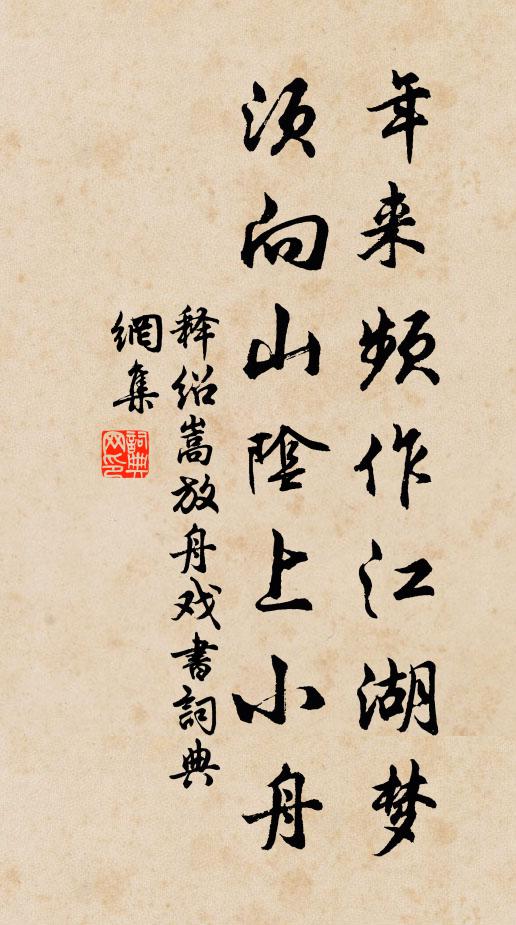 年来频作江湖梦
须向山陰上小舟
释绍嵩放舟戏書詞典
網集
詞典网印